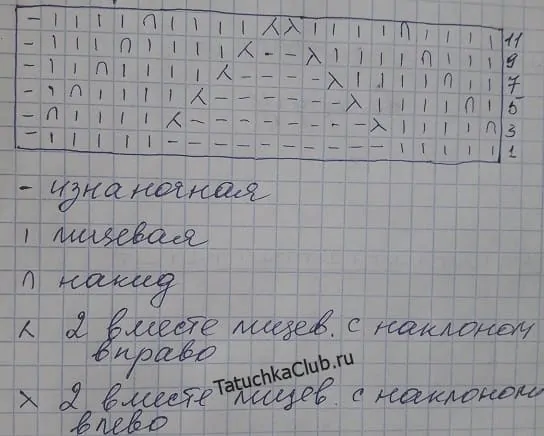 - | | | | ∩ | | | | ⋌ λ | | | | ∩ | | | | 11
- | | | ∩ | | | | ⋌ - - λ | | | | ∩ | | | 9
- | | ∩ | | | | ⋌ - - - - λ | | | | ∩ | | 7
- | ∩ | | | | ⋌ - - - - - - λ | | | | ∩ | 5
- ∩ | | | | ⋌ - - - - - - - - λ | | | | ∩ 3
- | | | | | - - - - - - - - - - | | | | | 1
- изнаночная
| лицевая
∩ накид
⋌ 2 вместе лицев. с наклоном
вправо
TatuchkaClub.ru
λ 2 вместе лицев. с наклоном
влево